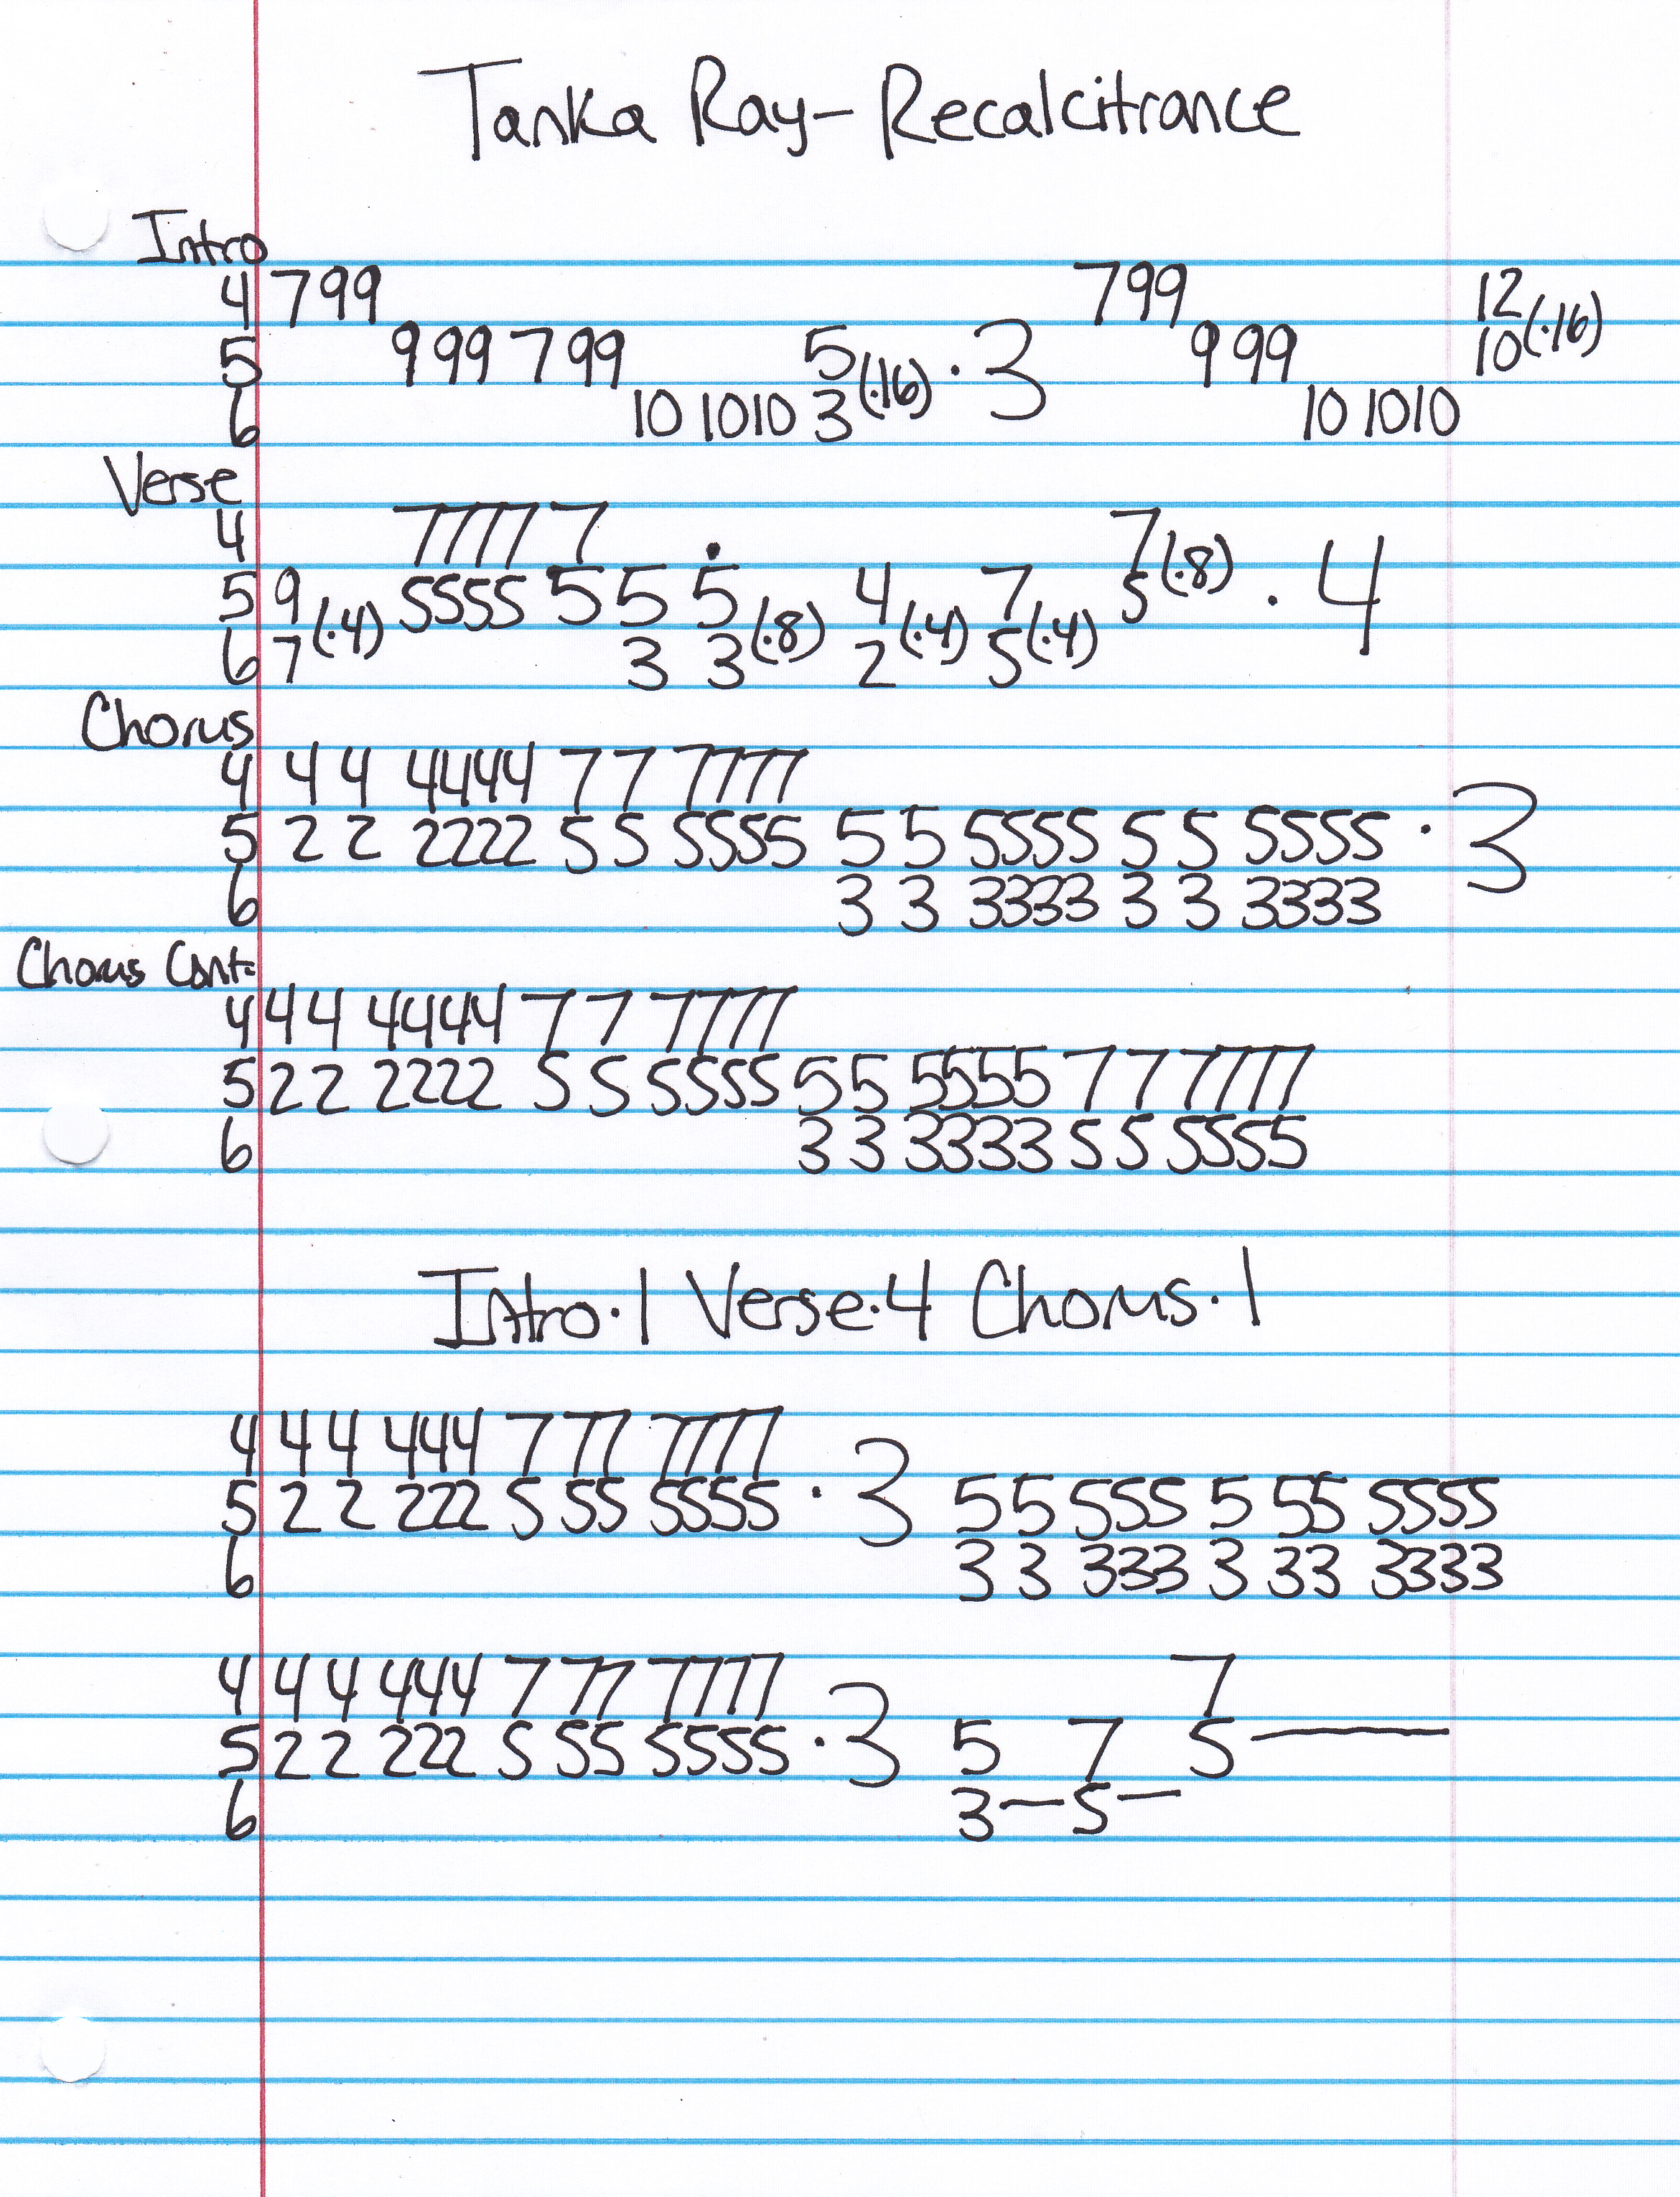 Tanka Ray - Recalcitrance
Intro
4 799 799 12
5 9 99 7 99 5 (·16) · 3 9 99 10 (·16)
6 10 1010 3 10 1010
Verse
4 7777 7 · 7 (·8) · 4
5 9 (·4) 5555 5 5 5 (·8) 4 (·4) 7 (·4) 5
6 7 3 3 2 5
Chorus
4 4 4 4444 7 7 7777
5 2 2 2222 5 5 5555 5 5 5555 5 5 5555 · 3
6 3 3 3333 3 3 3333
Chorus Cont.
4 4 4 4444 7 7 7777
5 2 2 2222 5 5 5555 5 5 5555 7 7 7777
6 3 3 3333 5 5 5555
Intro·1 Verse·4 Chorus·1
4 4 4 444 7 77 7777
5 2 2 222 5 55 5555 · 3 5 5 555 5 55 5555
6 3 3 333 3 33 3333
4 4 4 444 7 77 7777 7
5 2 2 222 5 55 5555 · 3 5 7 5 —
6 3 — 5 —